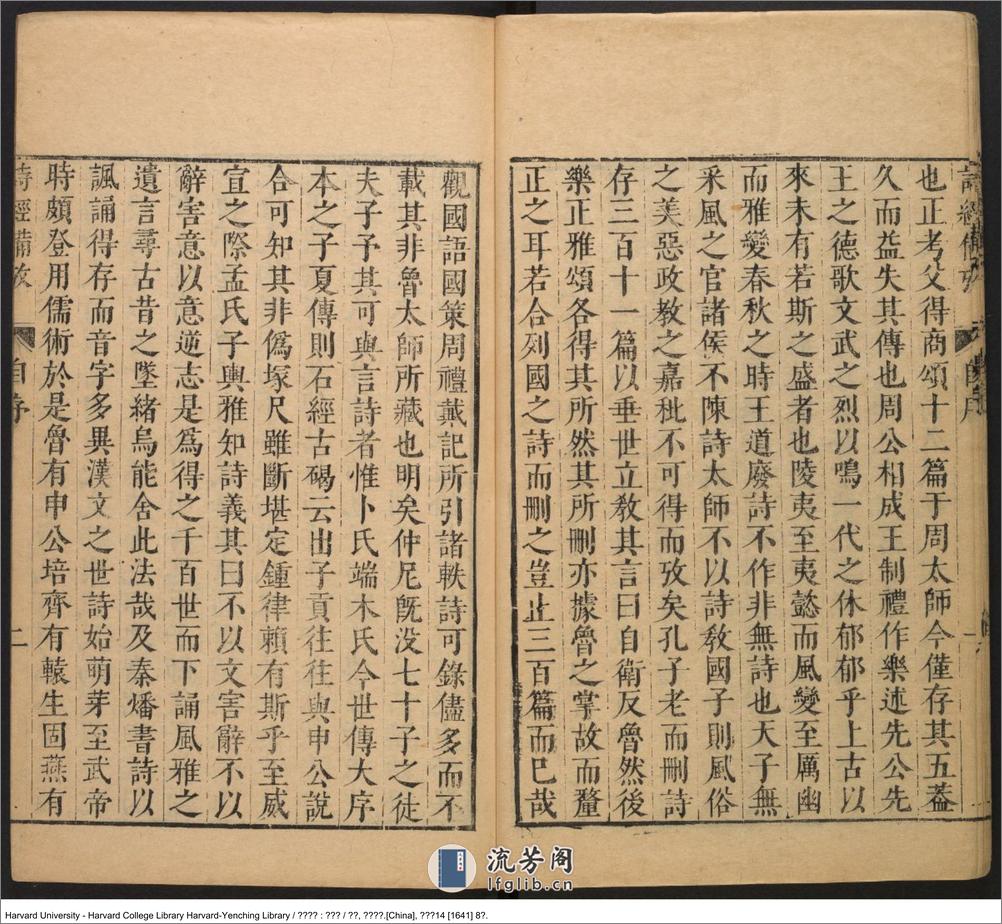 也正考父得商頌十二篇于周太師今僅存其五蓋
久而益失其傳也周公相成王制禮作樂述先公先
王之德歌文武之烈以鳴一代之休郁郁乎上古以
來未有若斯之盛者也陵夷至夷懿而風變至厲幽
而雅變春秋之時王道廢詩不作非無詩也天子無
采風之官諸侯不陳詩太師不以詩敎國子則風俗
之美惡政教之嘉秕不可得而攷矣孔子老而刪詩
存三百十一篇以垂世立敎其言曰自衛反魯然後
樂正雅頌各得其所然其所刪亦據魯之掌故而釐
正之耳若合列國之詩而刪之豈止三百篇而已哉
觀國語國策周禮戴記所引諸軼詩可錄儘多而不
載其非魯太師所藏也明矣仲尼旣没七十子之徒
夫子予其可與言詩者惟卜氏端木氏今世傳大序
本之子夏傳則石經古碣云出子貢往往與申公說
合可知其非僞塚尺雖斷堪定鍾律賴有斯乎至威
宣之際孟氏子輿雅知詩義其曰不以文害辭不以
辭害意以意逆志是爲得之千百世而下誦風雅之
遺言尋古昔之墜緒烏能舍此法哉及秦燔書詩以
諷誦得存而音字多異漢文之世詩始萌芽至武帝
時頗登用儒術於是魯有申公培齊有轅生固燕有
詩經備攷 自序 二
流芳阁
lfglib.cn
Harvard University - Harvard College Library Harvard-Yenching Library / ???? : ??? / ??, ????.[China], ???14 [1641] 8?.